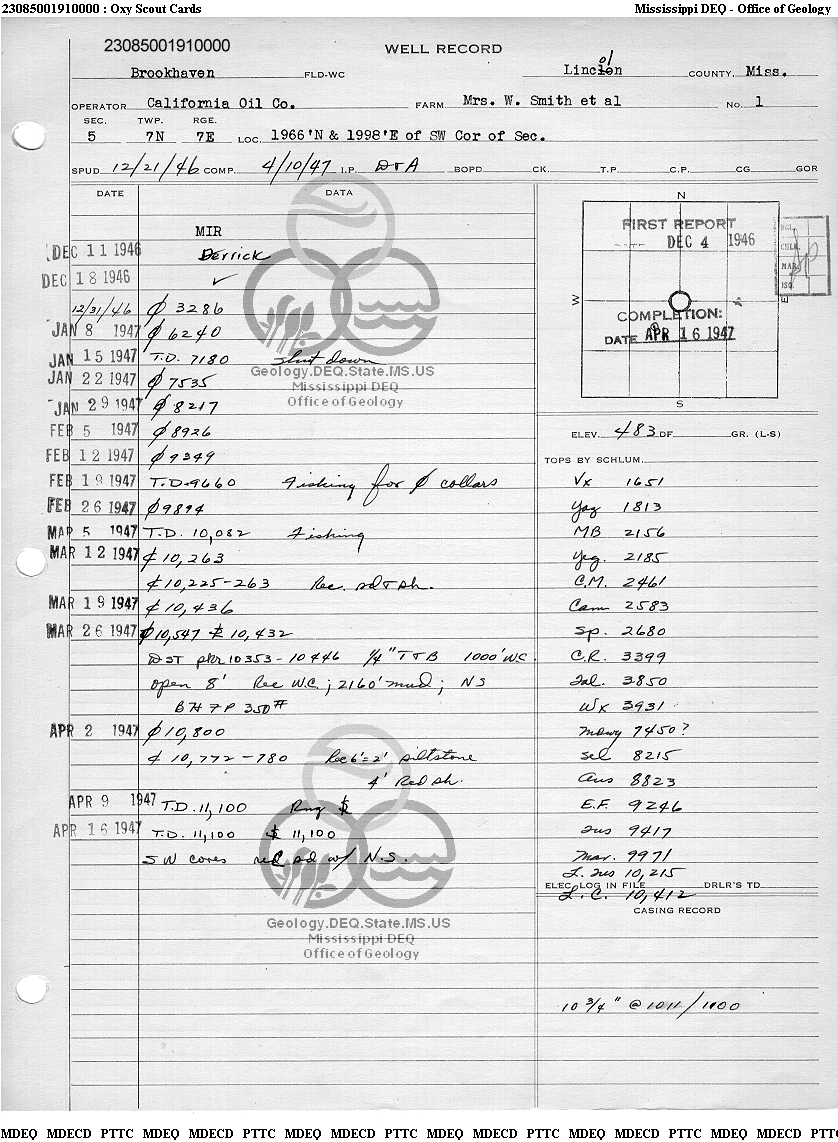 23085001910000 : Oxy Scout Cards Mississippi DEQ - Office of Geology
23085001910000
WELL RECORD
Brookhaven FLD-WC Lincoln COUNTY, Miss.
ol
OPERATOR California Oil Co. FARM Mrs. W. Smith et al No. 1
SEC. TWP. RGE.
5 7N 7E LOC. 1966'N & 1998'E of SW Cor of Sec.
SPUD 12/21/46 COMP. 4/10/47 I.P. D&A BOPD CK. T.P. C.P. CG GOR
DATE DATA
MIR
DEC 11 1946 Derrick
DEC 18 1946 ✓
12/31/46 ϕ 3286
JAN 8 1947 ϕ 6240
JAN 15 1947 T.D. 7180 shut down
JAN 22 1947 ϕ 7535
JAN 29 1947 ϕ 8217
FEB 5 1947 ϕ 8926
FEB 12 1947 ϕ 9349
FEB 19 1947 T.D. 9660 Fishing for ϕ collars
FEB 26 1947 ϕ 9894
MAR 5 1947 T.D. 10,082 Fishing
MAR 12 1947 ¢ 10,263
¢ 10,225-263 Rec. sd & sh.
MAR 19 1947 ¢ 10,436
MAR 26 1947 ϕ 10,547 $ 10,432
DST pkr 10353-10446 1/4" T&B 1000' WC.
open 8' Rec W.C; 2160' mud; NS
BHFP 350#
APR 2 1947 ϕ 10,800
¢ 10,772-780 Rec 6'=2' siltstone
4' Red sh.
APR 9 1947 T.D. 11,100 Rng $
APR 16 1947 T.D. 11,100 $ 11,100
SW cores red sd w/ N.S.
Geology.DEQ.State.MS.US
Mississippi DEQ
Office of Geology
Geology.DEQ.State.MS.US
Mississippi DEQ
Office of Geology
N
FIRST REPORT
DATE DEC 4 1946
W E
COMPLETION:
DATE APR 16 1947
S
REG.
MAR
ELEV. 483 DF GR. (L-S)
TOPS BY SCHLUM.
Vx 1651
Yaz 1813
MB 2156
Yeg. 2185
C.M. 2461
Cam 2583
Sp. 2680
C.R. 3399
Sal. 3850
Wx 3931
Mdwy 7450?
Sel 8215
Aus 8823
E.F. 9246
Tus 9417
Mar. 9971
L. Tus 10,215
ELEC. LOG IN FILE DRLR'S TD
L.C. 10,412
CASING RECORD
10 3/4" @ 1011/1100
MDEQ MDECD PTTC MDEQ MDECD PTTC MDEQ MDECD PTTC MDEQ MDECD PTTC MDEQ MDECD PTTC MDEQ MDECD PTT